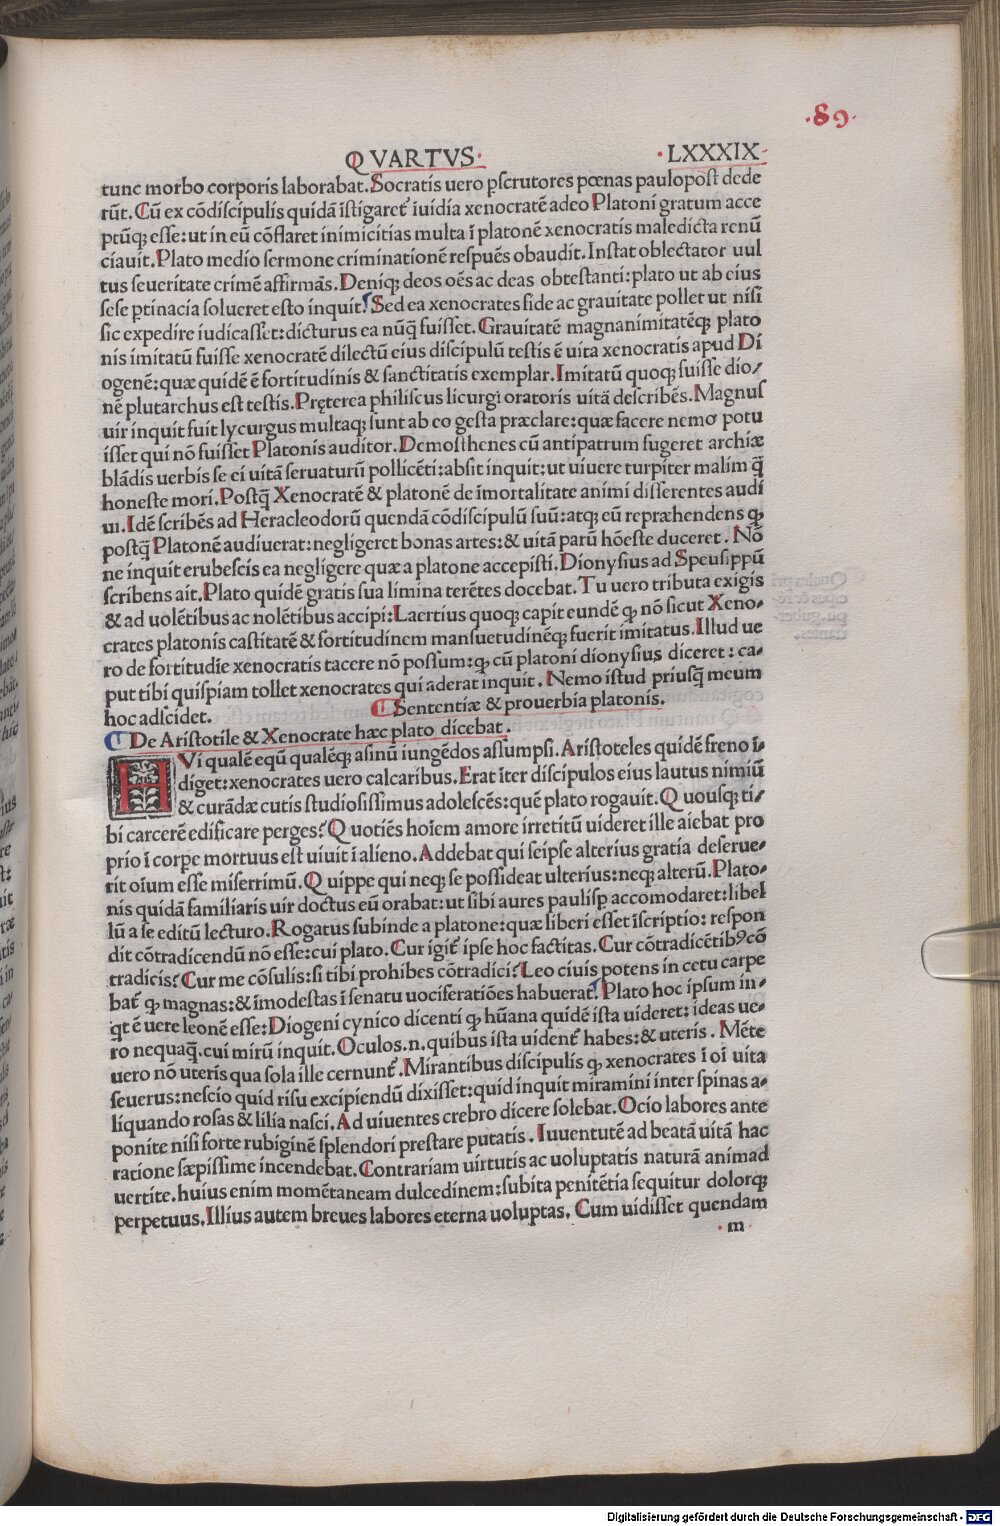 .89.
QVARTVS. .LXXXIX.
tunc morbo corporis laborabat. Socratis uero pscrutores pœnas paulopost dede
rūt. Cū ex cōdiscipulis quidā īstigaret̄ iuidia xenocratē adeo Platoni gratum acce
ptūq; esse: ut in eū cōflaret inimicitias multa ī platonē xenocratis maledicta renū
ciauit. Plato medio sermone criminationē respuēs obaudit. Instat oblectator uul
tus seueritate crimē affirmās. Deniq; deos oēs ac deas obtestanti: plato ut ab eius
sese ptinacia solueret esto inquit! Sed ea xenocrates fide ac grauitate pollet ut nisi
sic expedire iudicasset: dicturus ea nūq̄ fuisset. Grauitatē magnanimitatēq; plato
nis imitatū fuisse xenocratē dilectū eius discipulū testis ē uita xenocratis apud Di
ogenē: quæ quidē ē fortitudinis & sanctitatis exemplar. Imitatū quoq; fuisse dio/
nē plutarchus est testis. Pręterea philiscus licurgi oratoris uitā describēs. Magnus
uir inquit fuit lycurgus multaq; sunt ab eo gesta præclare: quæ facere nemo potu
isset qui nō fuisset Platonis auditor. Demosthenes cū antipatrum fugeret archiæ
blādis uerbis se ei uitā seruaturū pollicēti: absit inquit: ut uiuere turpiter malim q̄
honeste mori. Postq̄ Xenocratē & platonē de īmortalitate animi disserentes audi
ui. Idē scribēs ad Heracleodorū quendā cōdiscipulū suū: atq; eū repræhendens q;
postq̄ Platonē audiuerat: negligeret bonas artes: & uitā parū hōeste duceret. Nō
ne inquit erubescis ea negligere quæ a platone accepisti. Dionysius ad Speusippū
scribens ait. Plato quidē gratis sua limina terētes docebat. Tu uero tributa exigis
& ad uolētibus ac nolētibus accipi: Laertius quoq; capit eundē q; nō sicut Xeno-
crates platonis castitatē & fortitudinem mansuetudinēq; fuerit imitatus. Illud ue
ro de fortitudīe xenocratis tacere nō possum: q; cū platoni dionysius diceret: ca-
put tibi quispiam tollet xenocrates qui aderat inquit. Nemo istud priusq̄ meum
hoc adscidet. Sententiæ & prouerbia platonis.
De Aristotile & Xenocrate hæc plato dicebat.
HVi qualē equū qualēq; asinū iungēdos assumpsi. Aristoteles quidē freno ī-
diget: xenocrates uero calcaribus. Erat īter discipulos eius lautus nimiū
& curādæ cutis studiosissimus adolescēs: quē plato rogauit. Q uousq; ti/
bi carcerē edificare perges? Q uotiēs hoīem amore irretitū uideret ille aiebat pro
prio ī corpe mortuus est uiuit ī alieno. Addebat qui seipse alterius gratia deserue-
rit oīum esse miserrimū. Q uippe qui neq; se possideat ulterius: neq; alterū. Plato-
nis quidā familiaris uir doctus eū orabat: ut sibi aures paulisp accomodaret: libel
lū a se editū lecturo. Rogatus subinde a platone: quæ liberi esset īscriptio: respon
dit cōtradicendū nō esse: cui plato. Cur igit̄ ipse hoc factitas. Cur cōtradicētibꝰ cō
tradicis? Cur me cōsulis: si tibi prohibes cōtradici? Leo ciuis potens in cetu carpe
bat̄ q; magnas: & īmodestas ī senatu uociferatiōes habuerat. Plato hoc ipsum in-
qt ē uere leonē esse: Diogeni cynico dicenti q; hūana quidē ista uideret: ideas ue-
ro nequaq̄. cui mirū inquit. Oculos .n. quibus ista uident̄ habes: & uteris. Mēte
uero nō uteris qua sola ille cernunt̄. Mirantibus discipulis q; xenocrates ī oī uita
seuerus: nescio quid risu excipiendū dixisset: quid inquit miramini inter spinas a-
liquando rosas & lilia nasci. Ad uiuentes crebro dicere solebat. Ocio labores ante
ponite nisi forte rubiginē splendori prestare putatis. Iuuentutē ad beatā uitā hac
ratione sæpissime incendebat. Contrariam uirtutis ac uoluptatis naturā animad
uertite. huius enim momētaneam dulcedinem: subita penitētia sequitur dolorq;
perpetuus. Illius autem breues labores eterna uoluptas. Cum uidisset quendam
.m.
Digitalisierung gefördert durch die Deutsche Forschungsgemeinschaft - DFG